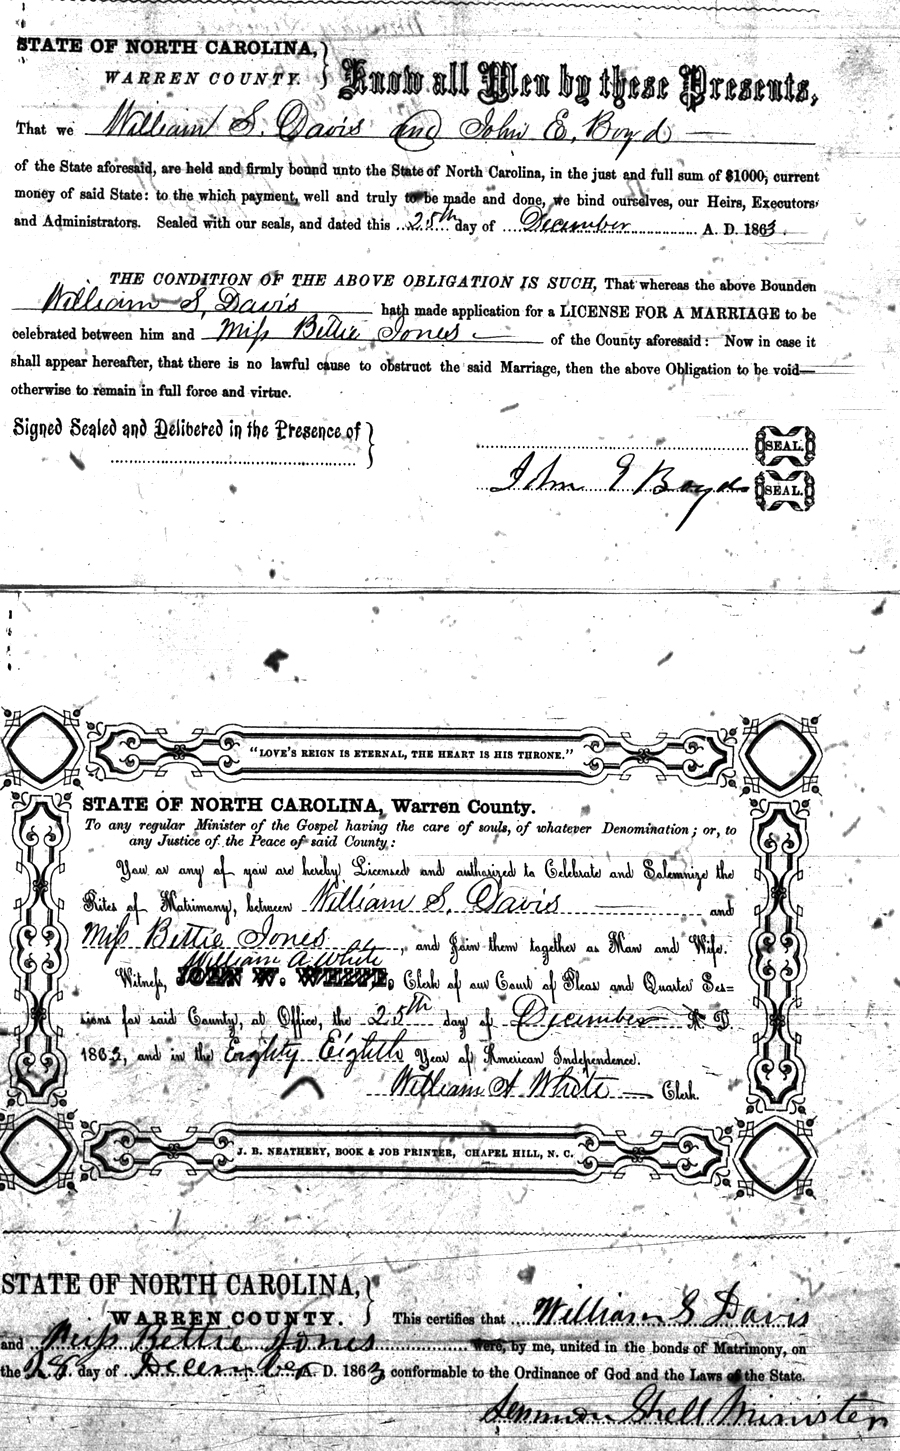 STATE OF NORTH CAROLINA,
WARREN COUNTY.
Know all Men by these Presents,
That we William S. Davis and John E. Boyd
of the State aforesaid, are held and firmly bound unto the State of North Carolina, in the just and full sum of $1000, current
money of said State: to the which payment, well and truly to be made and done, we bind ourselves, our Heirs, Executors
and Administrators. Sealed with our seals, and dated this 25th day of December A. D. 1863.
THE CONDITION OF THE ABOVE OBLIGATION IS SUCH, That whereas the above Bounden
William S, Davis hath made application for a LICENSE FOR A MARRIAGE to be
celebrated between him and Miss Bettie Jones of the County aforesaid: Now in case it
shall appear hereafter, that there is no lawful cause to obstruct the said Marriage, then the above Obligation to be void—
otherwise to remain in full force and virtue.
Signed Sealed and Delibered in the Presence of
SEAL.
John E Boyd SEAL.
"LOVE'S REIGN IS ETERNAL, THE HEART IS HIS THRONE."
STATE OF NORTH CAROLINA, Warren County.
To any regular Minister of the Gospel having the care of souls, of whatever Denomination; or, to
any Justice of the Peace of said County,:
You or any of you are hereby Licensed and authorized to Celebrate and Solemnize the
Rites of Matrimony, between William S. Davis and
Miss Bettie Jones, and Join them together as Man and Wife.
William A. White
Witness, JOHN W. WHITE, Clerk of our Court of Pleas and Quarter Ses=
sions for said County, at Office, the 25th day of December A D
1863, and in the Eighty Eighth Year of American Independence.
William A White Clerk.
J. B. NEATHERY, BOOK & JOB PRINTER, CHAPEL HILL, N. C.
STATE OF NORTH CAROLINA,
WARREN COUNTY.
This certifies that William S Davis
and Miss Bettie Jones were, by me, united in the bonds of Matrimony, on
the 28 day of December A. D. 1863, conformable to the Ordinance of God and the Laws of the State.
Shell Minister